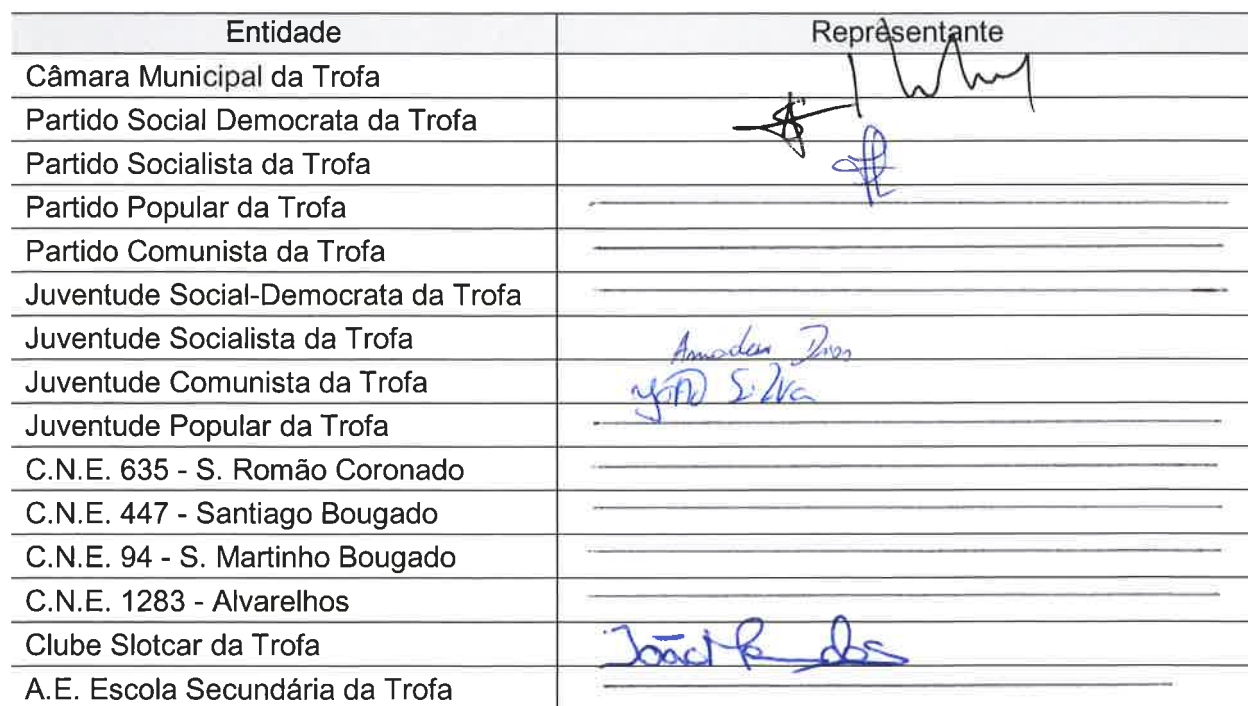 Entidade Representante
Câmara Municipal da Trofa
Partido Social Democrata da Trofa
Partido Socialista da Trofa
Partido Popular da Trofa
Partido Comunista da Trofa
Juventude Social-Democrata da Trofa
Juventude Socialista da Trofa Amadeu Dias
Juventude Comunista da Trofa João Silva
Juventude Popular da Trofa
C.N.E. 635 - S. Romão Coronado
C.N.E. 447 - Santiago Bougado
C.N.E. 94 - S. Martinho Bougado
C.N.E. 1283 - Alvarelhos
Clube Slotcar da Trofa João
A.E. Escola Secundária da Trofa